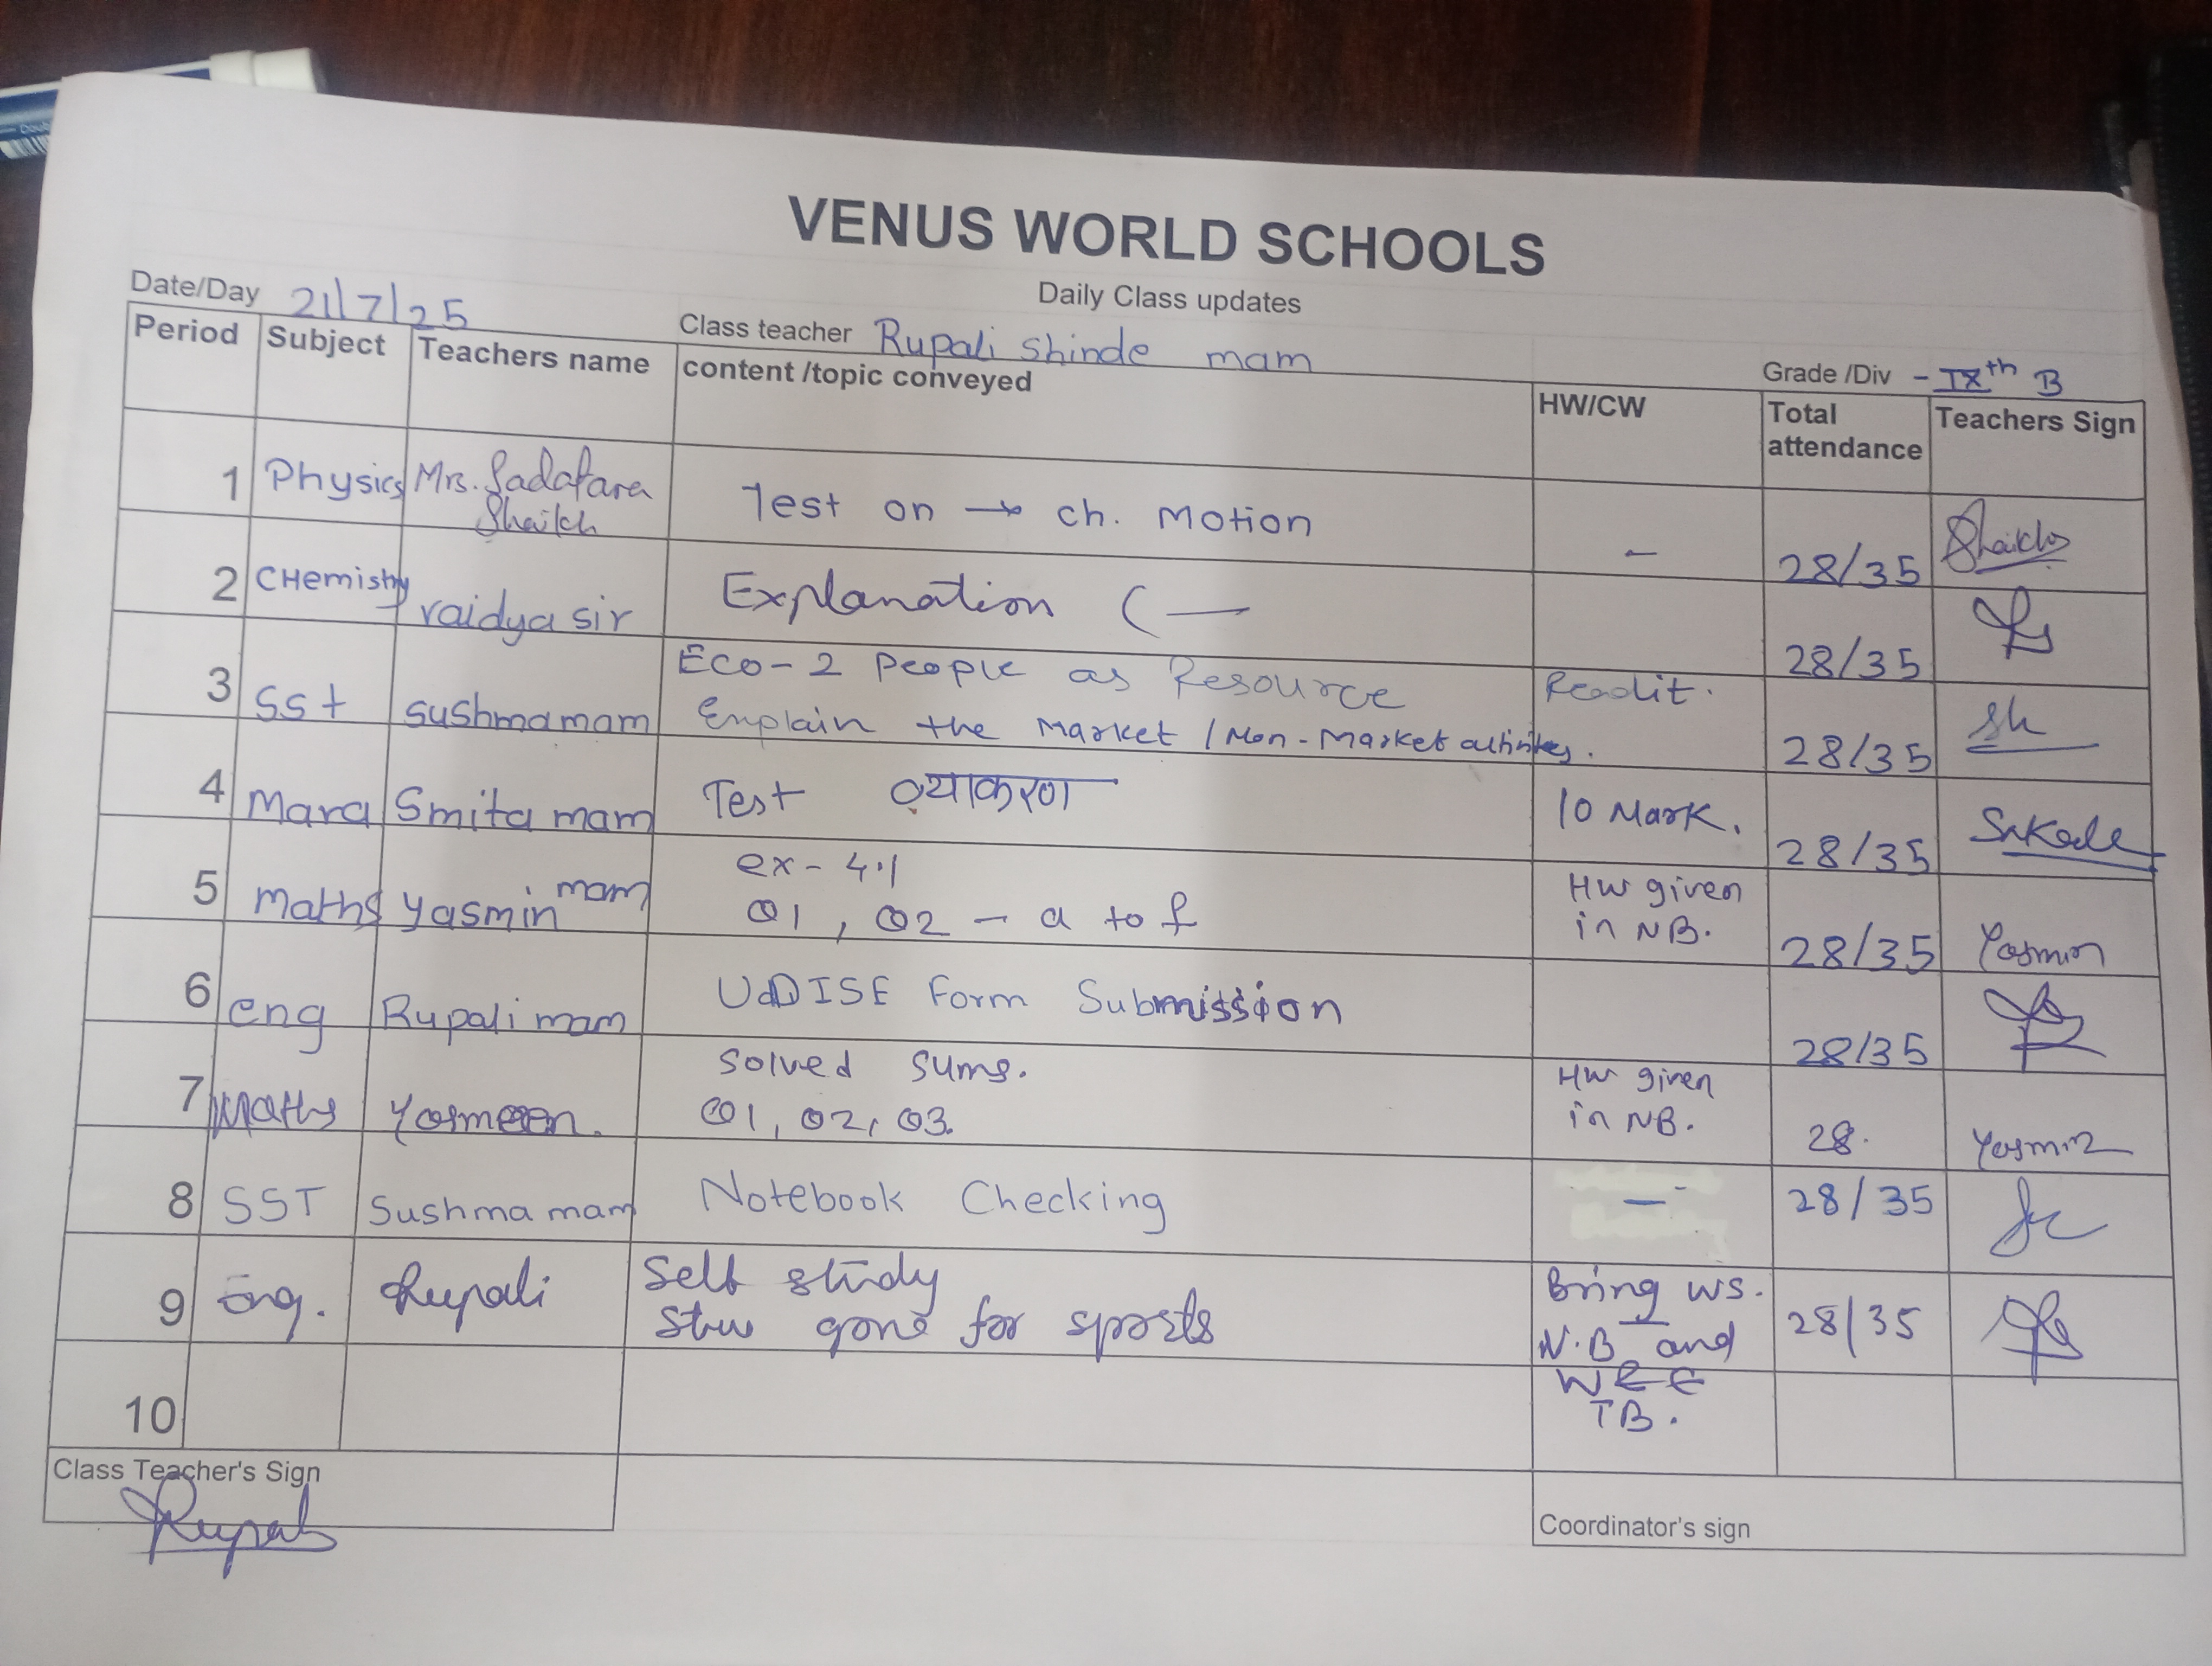 VENUS WORLD SCHOOLS
Daily Class updates
Date/Day 21/7/25
Class teacher Rupali Shinde mam
Grade /Div - IXth B
Period Subject Teachers name content /topic conveyed HW/CW Total attendance Teachers Sign
1 Physics Mrs. Sadafara Shaikh Test on → ch. Motion – 28/35 Shaikh
2 CHemistry vaidya sir Explanation ( — 28/35
3 SSt sushma mam Eco-2 People as Resource Readit. 28/35 Sh
Explain the Market / Non-Market activities.
4 Mara Smita mam Test व्याकरण 10 Mark. 28/35
5 Maths Yasmin mam ex-4.1 HW given 28/35 Yasmin
Q1, Q2 - a to f in NB.
6 eng Rupali mam UDISE Form Submission 28/35
7 Maths Yasmeen. Solved sums. HW given 28. Yasmin
Q1, Q2, Q3. in NB.
8 SST Sushma mam Notebook Checking – 28/35
9 Eng. Rupali Self study Bring WS. 28/35
gone for sports N.B and
10 TB.
Class Teacher's Sign
Rupali
Coordinator's sign